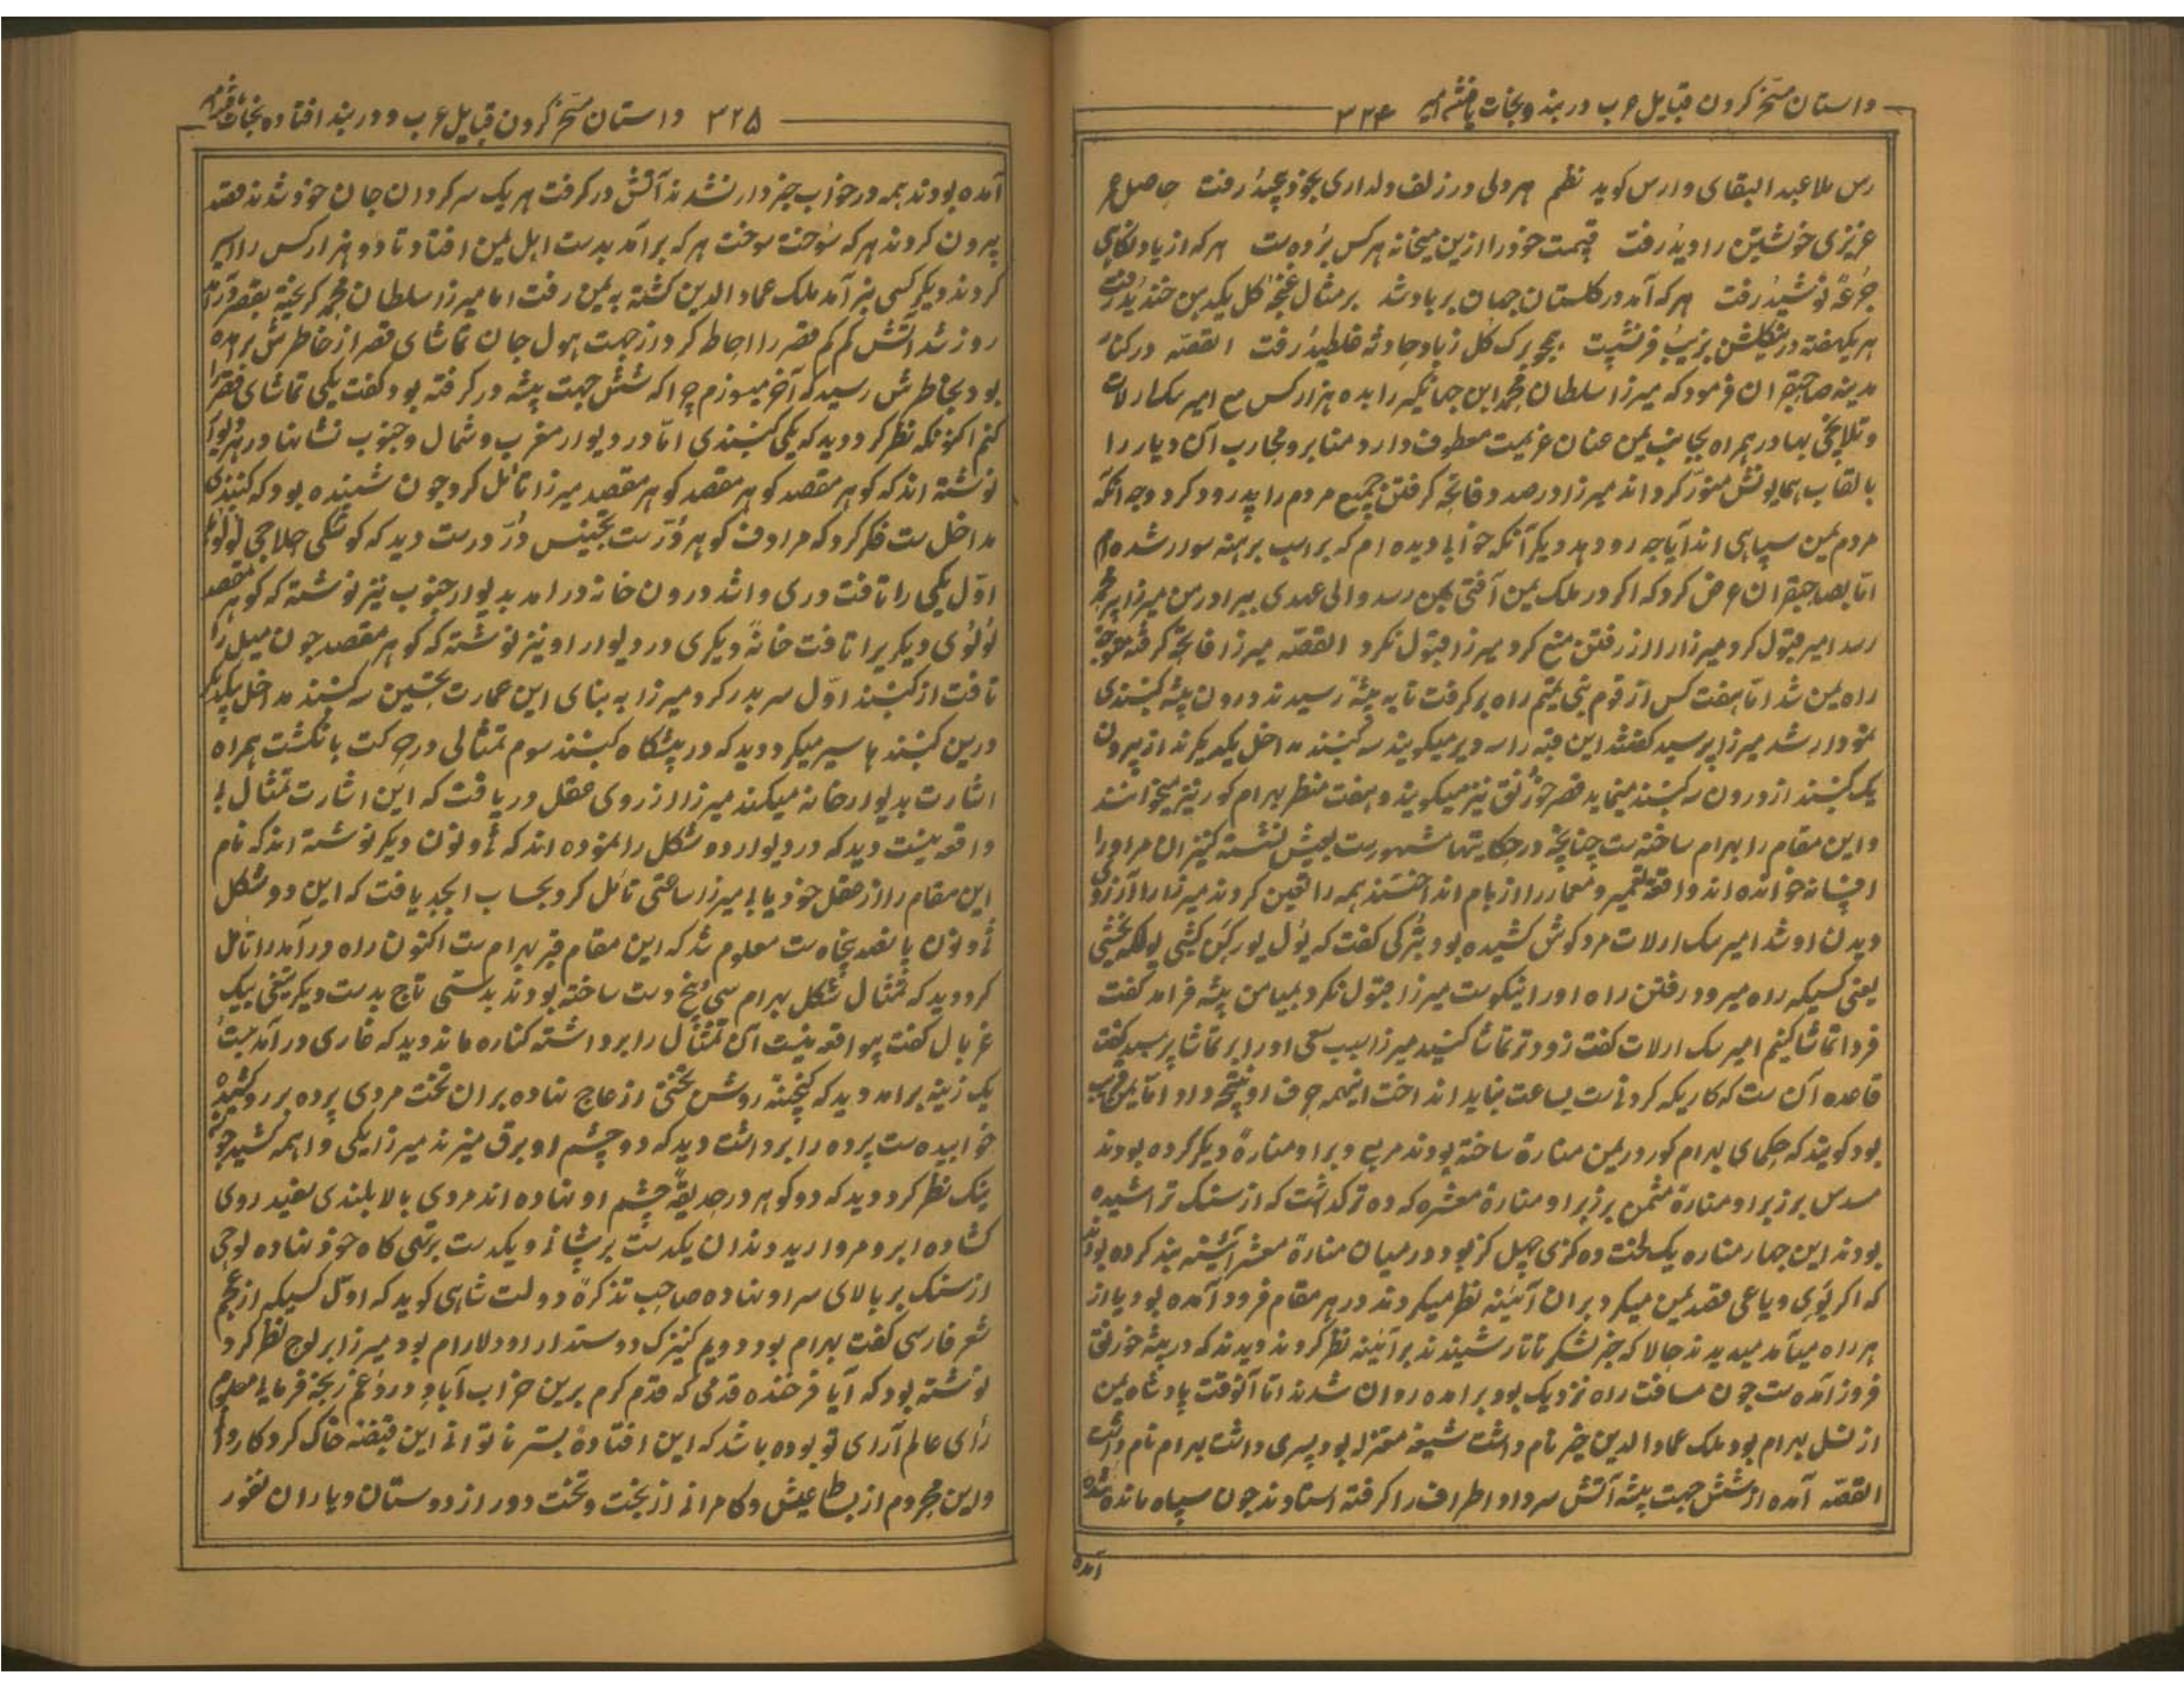 داستان مسخر کردن قبایل عرب در بند و نجات یافتن امیر ۳۲۴
رس ملا عبد البقای وارس کوید نظم هر دلی در زلف دلداری بخود پیچید رفت حاصل عمر
عزیزی خویشتن را دید رفت قیمت خود را ازین میخانه هر کس برده ست هر که از یاد لکابی
جرعهٔ نوشید رفت هر که آمد در کلستان جهان بر باد شد بر مثال غنچه کل یکدهن خندید رفت
هر یکهفته در کلشن بزیب و فر نشست همچو برک کل ز باد حادثه غلطید رفت القصه در
مدینه صاحبقران فرمود که میرزا سلطان محمد ابن جهانکیر را بده هزار کس مع امیر یک ارلات
و تلاخجی بهادر همراه بجانب یمن عنان عزیمت معطوف دارد و منابر و محارب آن دیار را
بالقاب همایونش منور کرداند میرزا در صدد فاتحه کرفتن جمیع مردم را پدرود کرد وجه آنکه
مردم یمن سپاهی اند آیا چه رو دهد دیکر آنکه خوابی دیده ام که بر اسب برهنه سوار شده ام
اما بصاحبقران عرض کرد که اکر در ملک یمن آفتی بمن رسد والی عهدی ببرادر من میرزا پیر محمد
رسد امیر قبول کرد میرزا را از رفتن منع کرد میرزا قبول نکرد القصه میرزا فاتحه کرفته متوجه
راه یمن شد اما هفت کس از قوم بنی یتیم راه بر کرفت تا به پشه رسیدند درون پشه کنبندی
نمودار شد میرزا پرسید کفتند این قبه را سه دیر میکویند سه کنبند مداخل یکدیکرند از بیرون
یک کنبند از درون سه کنبند مینماید قصر خورنق نیز میکویند و هفت منظر بهرام کور نیز میخوانند
و این مقام را بهرام ساخته ست چنانچه در حکایتها مشهور ست بعیش نشسته کنیزان مر او را
افسانه خوانده اند و واقعه تعمیر و معمار را از بام انداختند همه را تعین کردند میرزا را آرزوی
دیدن او شد امیر یک ارلات مرد کوش کشیده بود بترکی کفت که یول یورکن کیشی یولکه یخشی
یعنی کسیکه راه میرود رفتن راه او را نیکوست میرزا قبول نکرد بمیامن پشه فرامد کفت
فردا تماشا کنیم امیر یک ارلات کفت زودتر تماشا کنید میرزا سبب سعی او را بر تماشا پرسید کفت
قاعده آن ست که کاریکه کردنی ست بساعت نباید انداخت اینهمه حرف او نتیجه داد اما یمن قریب
بود کویند که حکمای بهرام کور در یمن منارهٔ ساخته بودند مربع و بر او منارهٔ دیکر کرده بودند
مسدس بر زبر او منارهٔ مثمن بر زبر او منارهٔ معشره که ده ترک داشت که از سنک تراشیده
بودند این چهار مناره یک لخت ده کزی چهل کز بود در میان منارهٔ معشر آئینه بند کرده بودند
که اکر یوی ویاعی قصد یمن میکرد بران آئینه نظر میکردند در هر مقام فرود آمده بود یا از
هر راه میآمد میدیدند حالا که خبر لشکر تاتار شنیدند بر آئینه نظر کردند دیدند که در پشه خورنق
فروز آمده ست چون مسافت راه نزدیک بود برامده روان شدند اما آنوقت پادشاه یمن
از نسل بهرام بود ملک عماد الدین خضر نام داشت شیعهٔ معتزله بود پسری داشت بهرام نام داشت
القصه آمده از شش جهت پشه آتش سر داد اطراف را کرفته استادند چون سپاه مانده شده
آمده
۳۲۵ داستان مسخر کردن قبایل عرب و در بند افتاده نجات یافتن امیر
آمده بودند همه در خواب خبردار نشدند آتش در کرفت هر یک سر کردان جان خود شدند قصد
بیرون کردند هر که سوخت سوخت هر که برامد بدست اهل یمن افتاد تا دو هزار کس را اسیر
کردند دیکر کسی نبرآمد ملک عماد الدین کشته به یمن رفت اما میرزا سلطان محمد کریخته بقصر درآمد
روز شد آتش کم کم قصر را احاطه کرد از جهت هول جان تماشای قصر از خاطرش برامده
بود بخاطرش رسید که آخر میسوزم چرا که شش جهت پشه در کرفته بود کفت یکی تماشای قصر را
کنم اکنونکه نظر کرد دید که یکی کنبندی اما در دیوار مغرب و شمال و جنوب نشانها در هر دیوار
نوشته اند که کوهر مقصد کوهر مقصد کوهر مقصد میرزا تامل کرد چون شنیده بود که کنبندی
مداخل ست فکر کرد که مرادف کوهر در ست بتجنیس در درست دید که کوشکی حلاجی لولوی
اول یکی را تافت دری وا شد درون خانه درامد بدیوار جنوب نیز نوشته که کوهر مقصد
لولوی دیکر را تافت خانهٔ دیکری در دیوار او نیز نوشته که کوهر مقصد چون میل را
تافت از کنبند اول سر بدر کرد میرزا به بنای این عمارت تحسین سه کنبند مداخل یکدیکر
درین کنبندها سیر میکرد دید که در پیشکاه کنبند سوم تمثالی در حرکت بانکشت همراه
اشارت بدیوار خانه میکند میرزا از روی عقل دریافت که این اشارت تمثال بی
واقعه نیست دید که در دیوار دو شکل را نموده اند که ثی و نون دیکر نوشته اند که نام
این مقام را از عقل خود یابی میرزا ساعتی تامل کرد بحساب ابجد یافت که این دو شکل
ثی و نون پانصد پنجاه ست معلوم شد که این مقام قبر بهرام ست اکنون راه درآمد را تامل
کرد دید که تمثال شکل بهرام سی خ دست ساخته بودند بدستی تاج بدست دیکر تیغی بیک
غربال کفت بیواقعه نیست آن تمثال را برداشته کناره ماند دید که غاری درآمد بیست
یک زینه برامد دید که کنجینهٔ روشن تختی از عاج نهاده بران تخت مردی پرده بر رو کشیده
خوابیده ست پرده را برداشت دید که دو چشم او برق میزند میرزا یکی واهمه کشید چون
نیک نظر کرد دید که دو کوهر در حدیقهٔ چشم او نهاده اند مردی بالا بلندی سفید روی
کشاده ابرو مروارید دندان یکدست بر پیشانی و یکدست بر تهی کاه خود نهاده لوحی
از سنک بر بالای سر او نهاده صاحب تذکرهٔ دولت شاهی کوید که اول کسیکه از عجم
شعر فارسی کفت بهرام بود و دویم کنیزک دوستدار او دلارام بود میرزا بر لوح نظر کرد
نوشته بود که آیا فرخنده قدمی که قدم کرم برین خراب آباد درد و غم رنجه فرمایی معلوم
رای عالم آرای تو بوده باشد که این افتادهٔ بستر ناتوانی این قبضه خاک کرد کاروان
و این محروم از بساط عیش و کامرانی از بخت و تخت دور از دوستان و یاران نفور